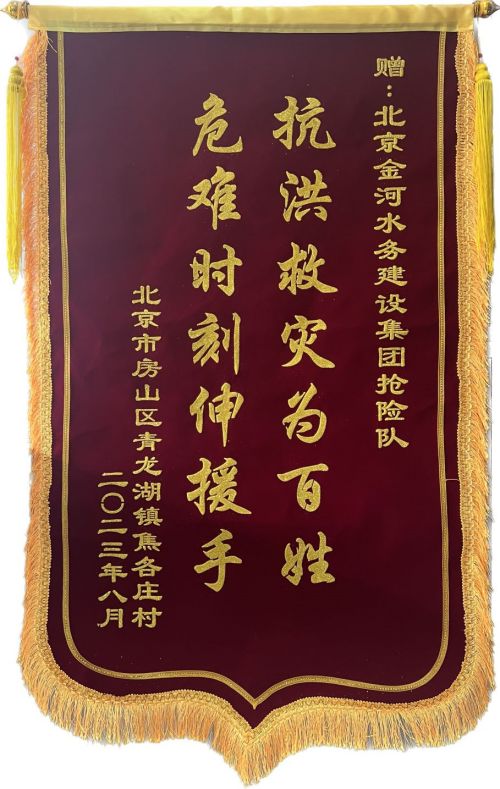 赠:北京金河水务建设集团抢险队
抗洪救灾为百姓
危难时刻伸援手
北京市房山区青龙湖镇焦各庄村
二〇二三年八月